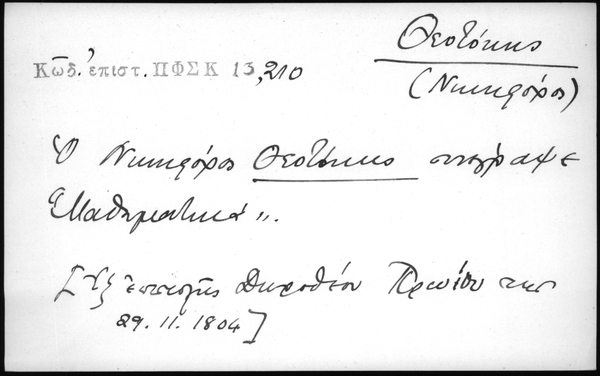 Θεοτόκης
Κωδ. ἐπιστ. ΠΦΣΚ 13, 210
(Νικηφόρος)
Ὁ Νικηφόρος Θεοτόκης συνέγραψε
"Μαθηματικά".
[Ἐξ ἐπιστολῆς Δωροθέου Πρωίου τῆς
29.11.1804]